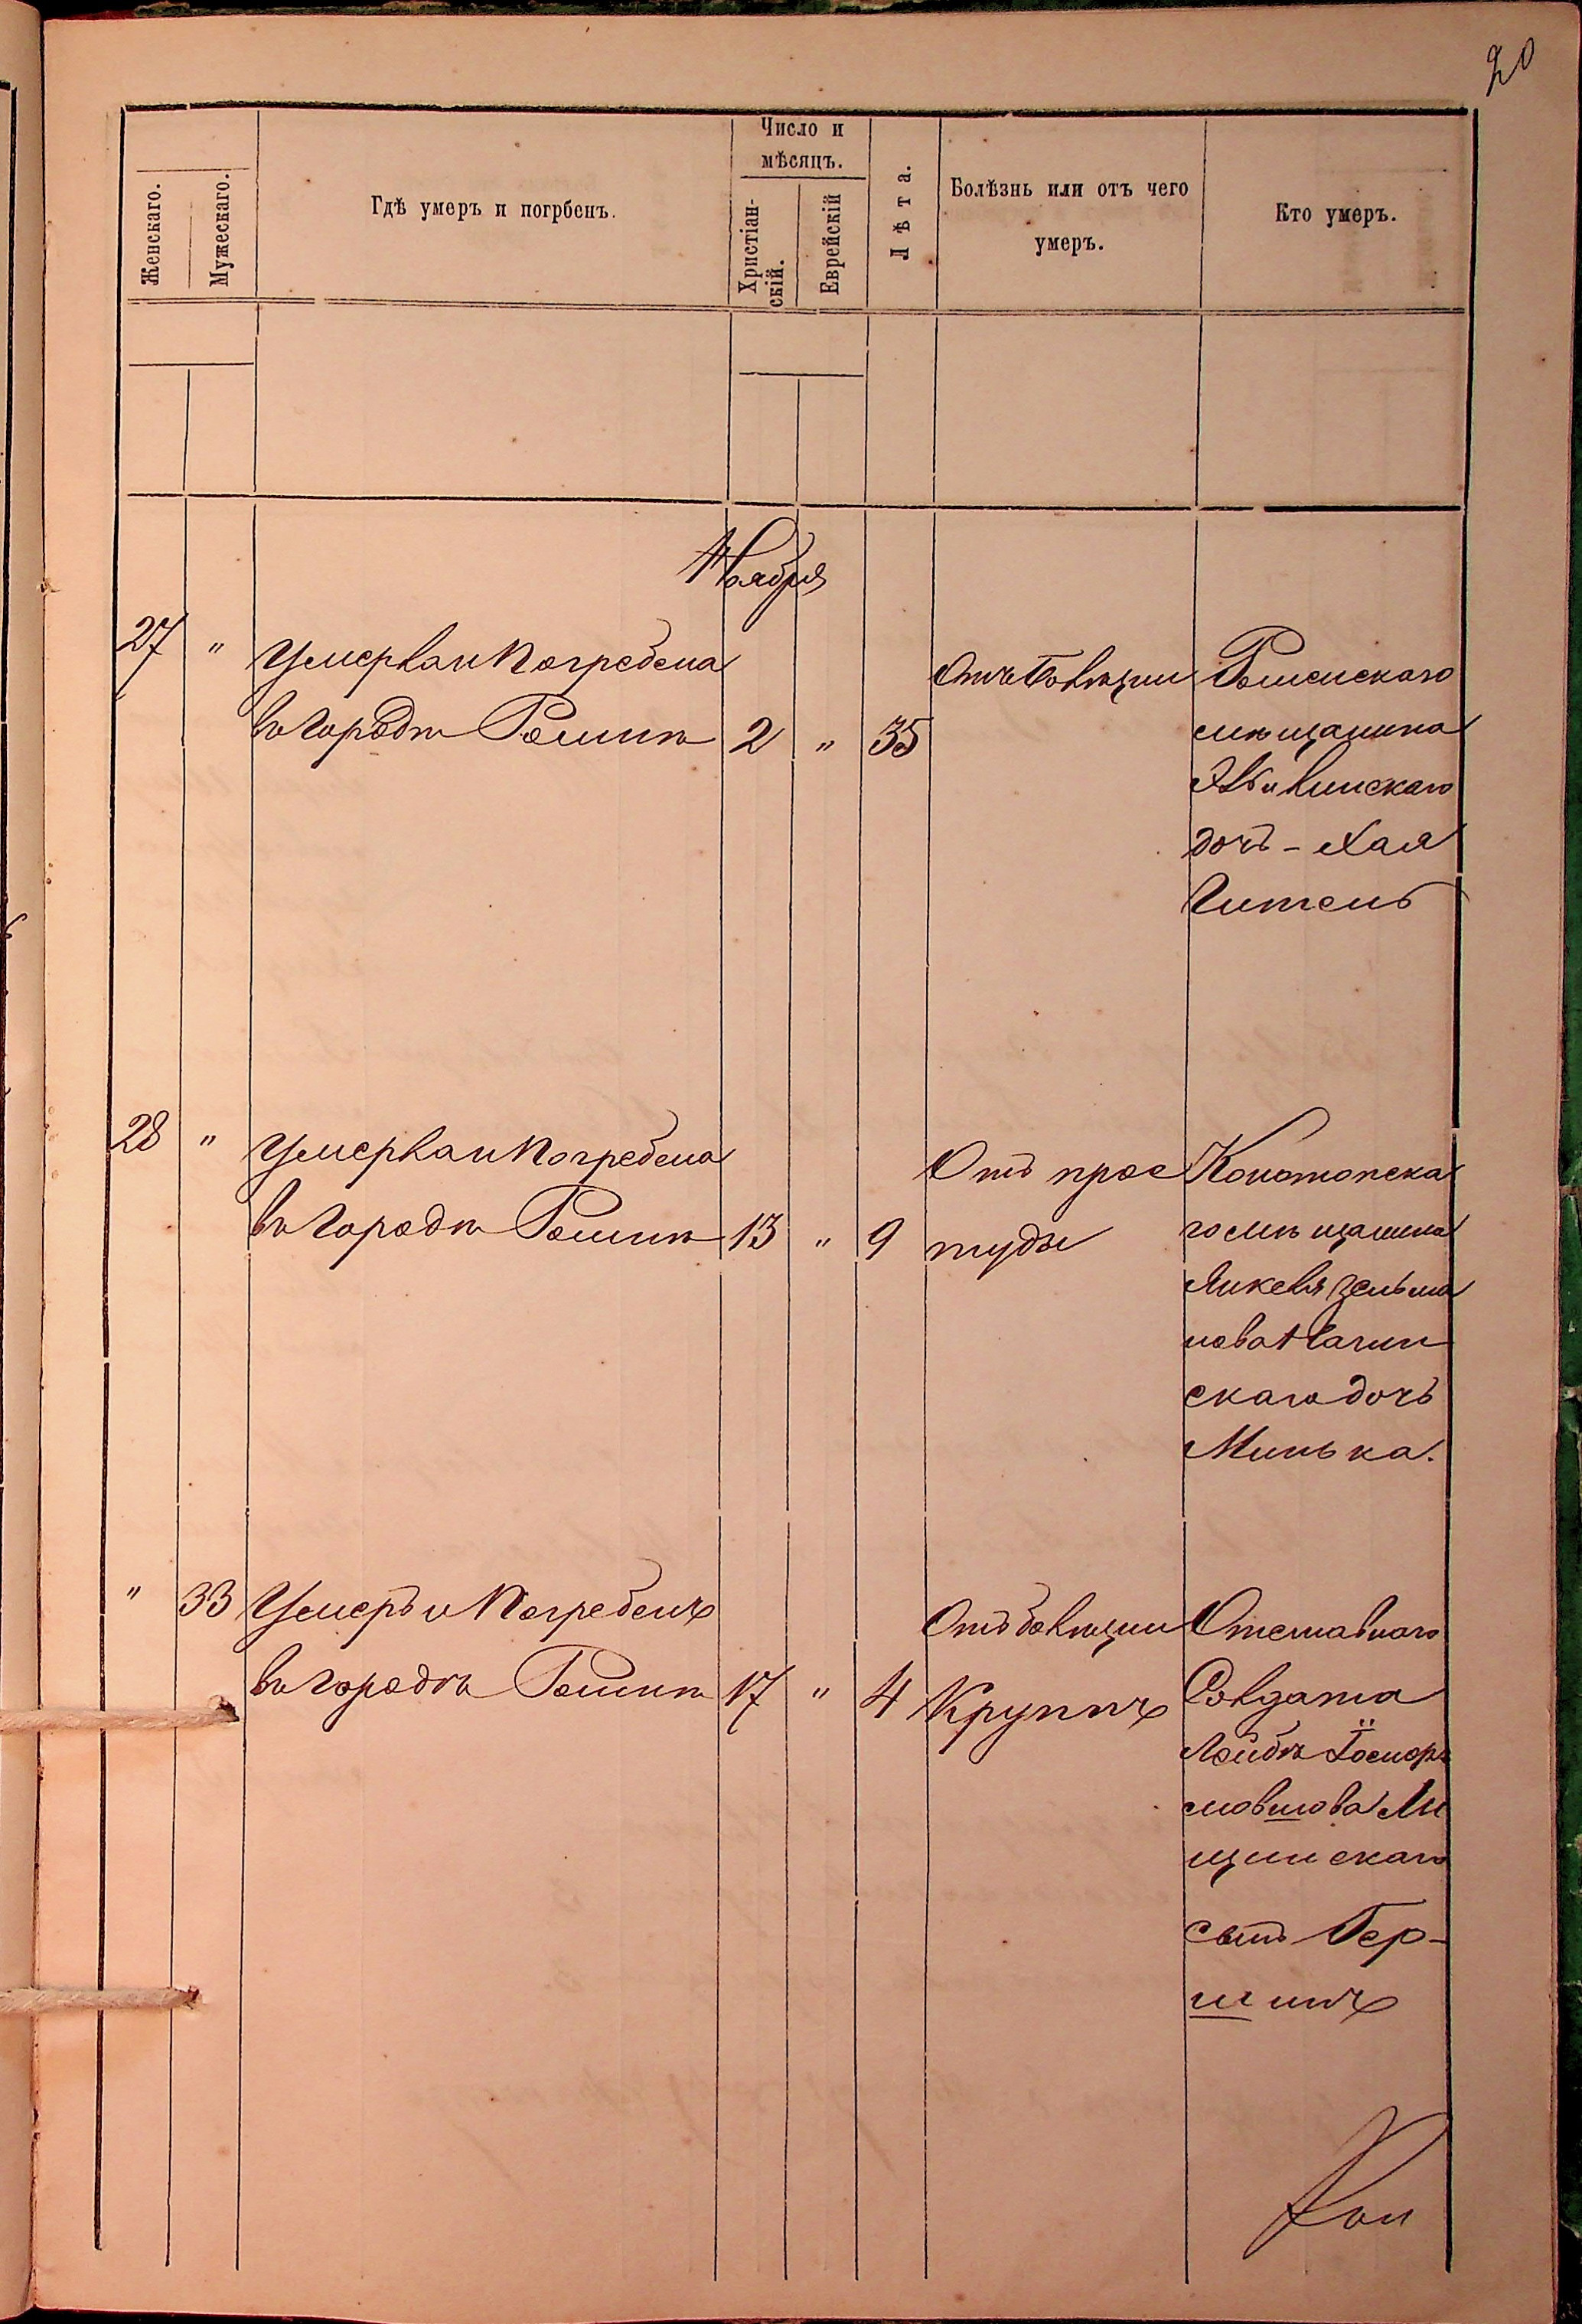 20
Женскаго.
Мужескаго.
Гдѣ умеръ и погрбенъ.
Число и
мѣсяцъ.
Христіан-
скій.
Еврейскій
Лѣта.
Болѣзнь или отъ чего
умеръ.
Кто умеръ.
Ноября
27 " Умерла и Погребена
въ городѣ Ромнѣ 2 " 35
Роменскаго
мѣщанина
дочь - Хая
28 " Умерла и Погребена
въ городѣ Ромнѣ 13 " 9
Отъ прос
туды
Конотопска
го мѣщанина
Янкеля Зельма
нова
скаго дочь
Минька.
" 33 Умеръ и Погребенъ
въ городѣ Ромнѣ 17 " 4
Отъ болѣзни
Крупъ
Отставнаго
Солдата
Лейбы
щинскаго
сынъ Гер-